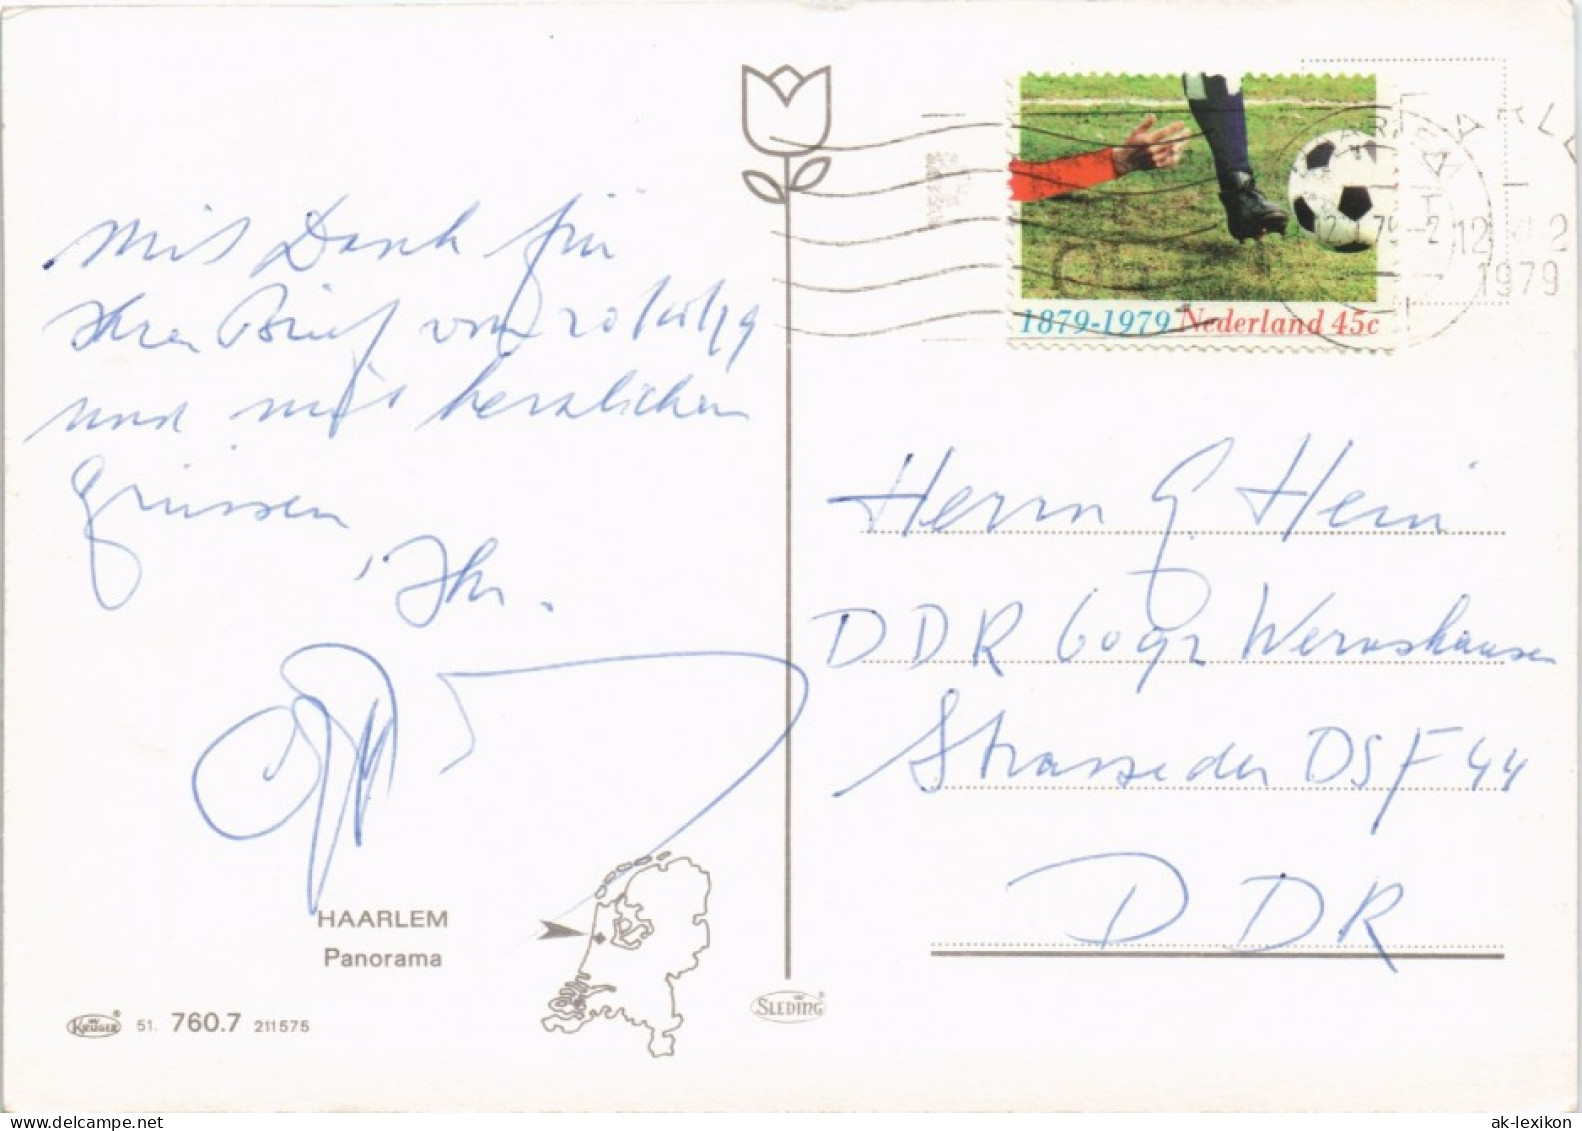 Mit Dank für
Ihren Brief vom
und mit herzlichen
grüssen
Ihr.
HAARLEM
Panorama
KRÜGER 51. 760.7 211575
SLEDING
1879-1979 Nederland 45c
1979
Herrn G. Hein
DDR 6092 Wernshausen
Strasse der DSF 44
DDR
ak-lexikon